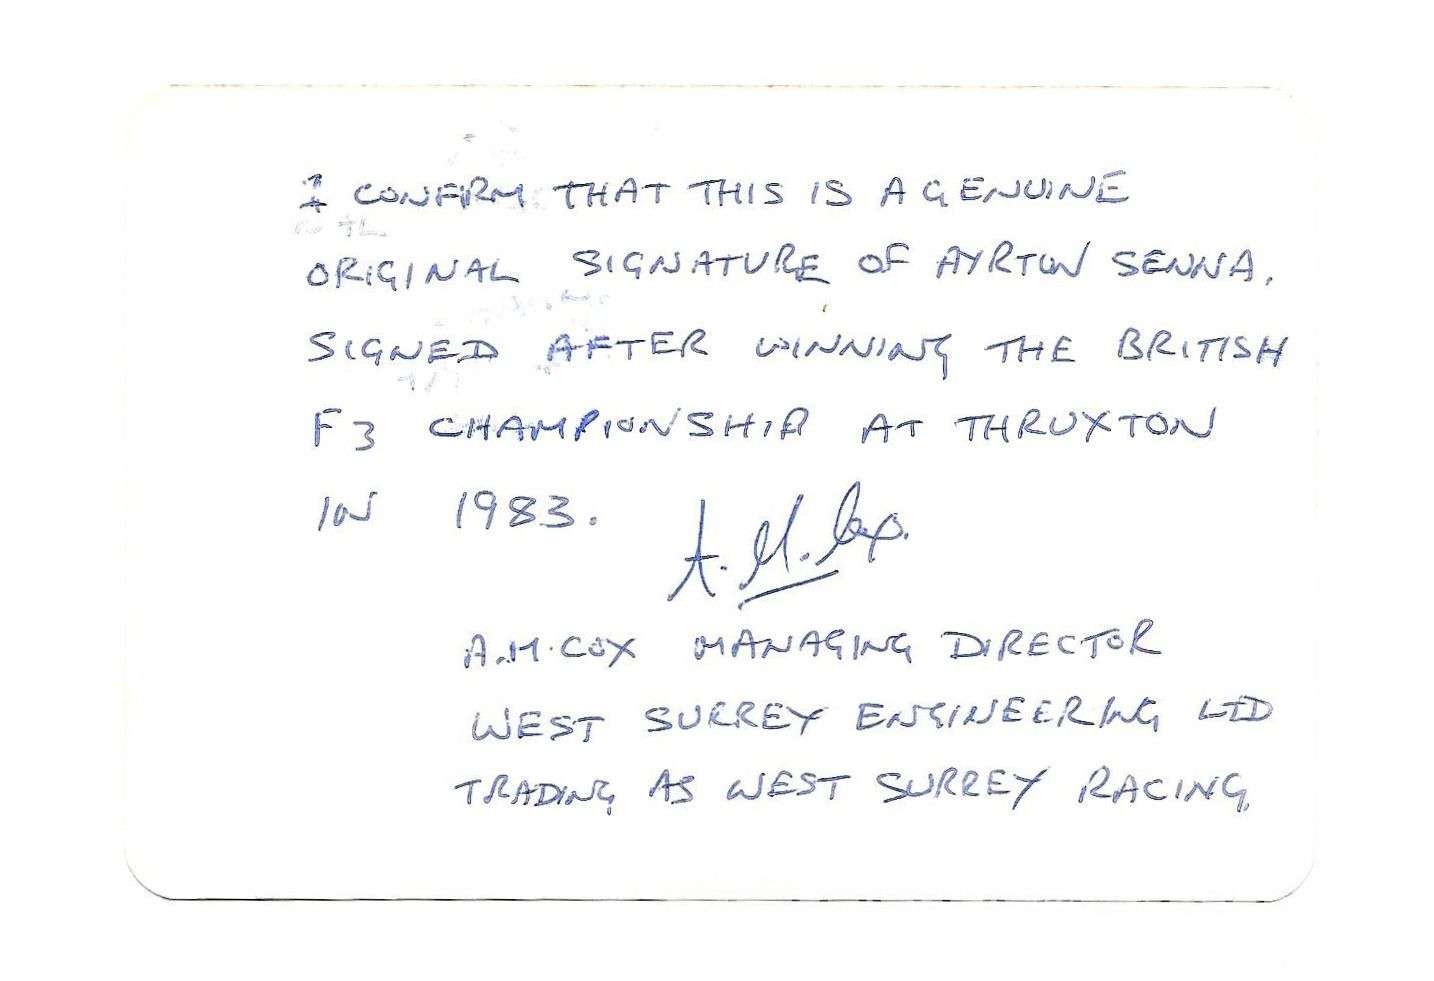 I CONFIRM THAT THIS IS A GENUINE
ORIGINAL SIGNATURE OF AYRTON SENNA.
SIGNED AFTER WINNING THE BRITISH
F3 CHAMPIONSHIP AT THRUXTON
IN 1983. A. M. Cox.
A.M. COX MANAGING DIRECTOR
WEST SURREY ENGINEERING LTD
TRADING AS WEST SURREY RACING.